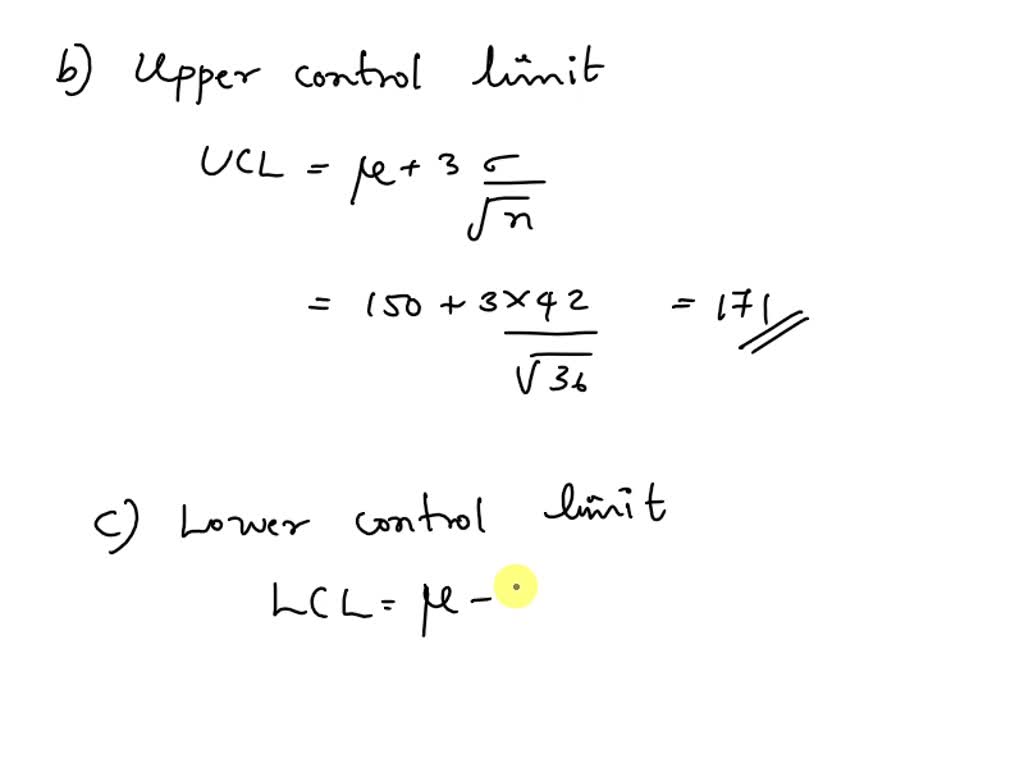 b) Upper control limit
UCL = μ + 3 σ/√n
= 150 + 3×42/√36 = 171
c) Lower control limit
LCL = μ -